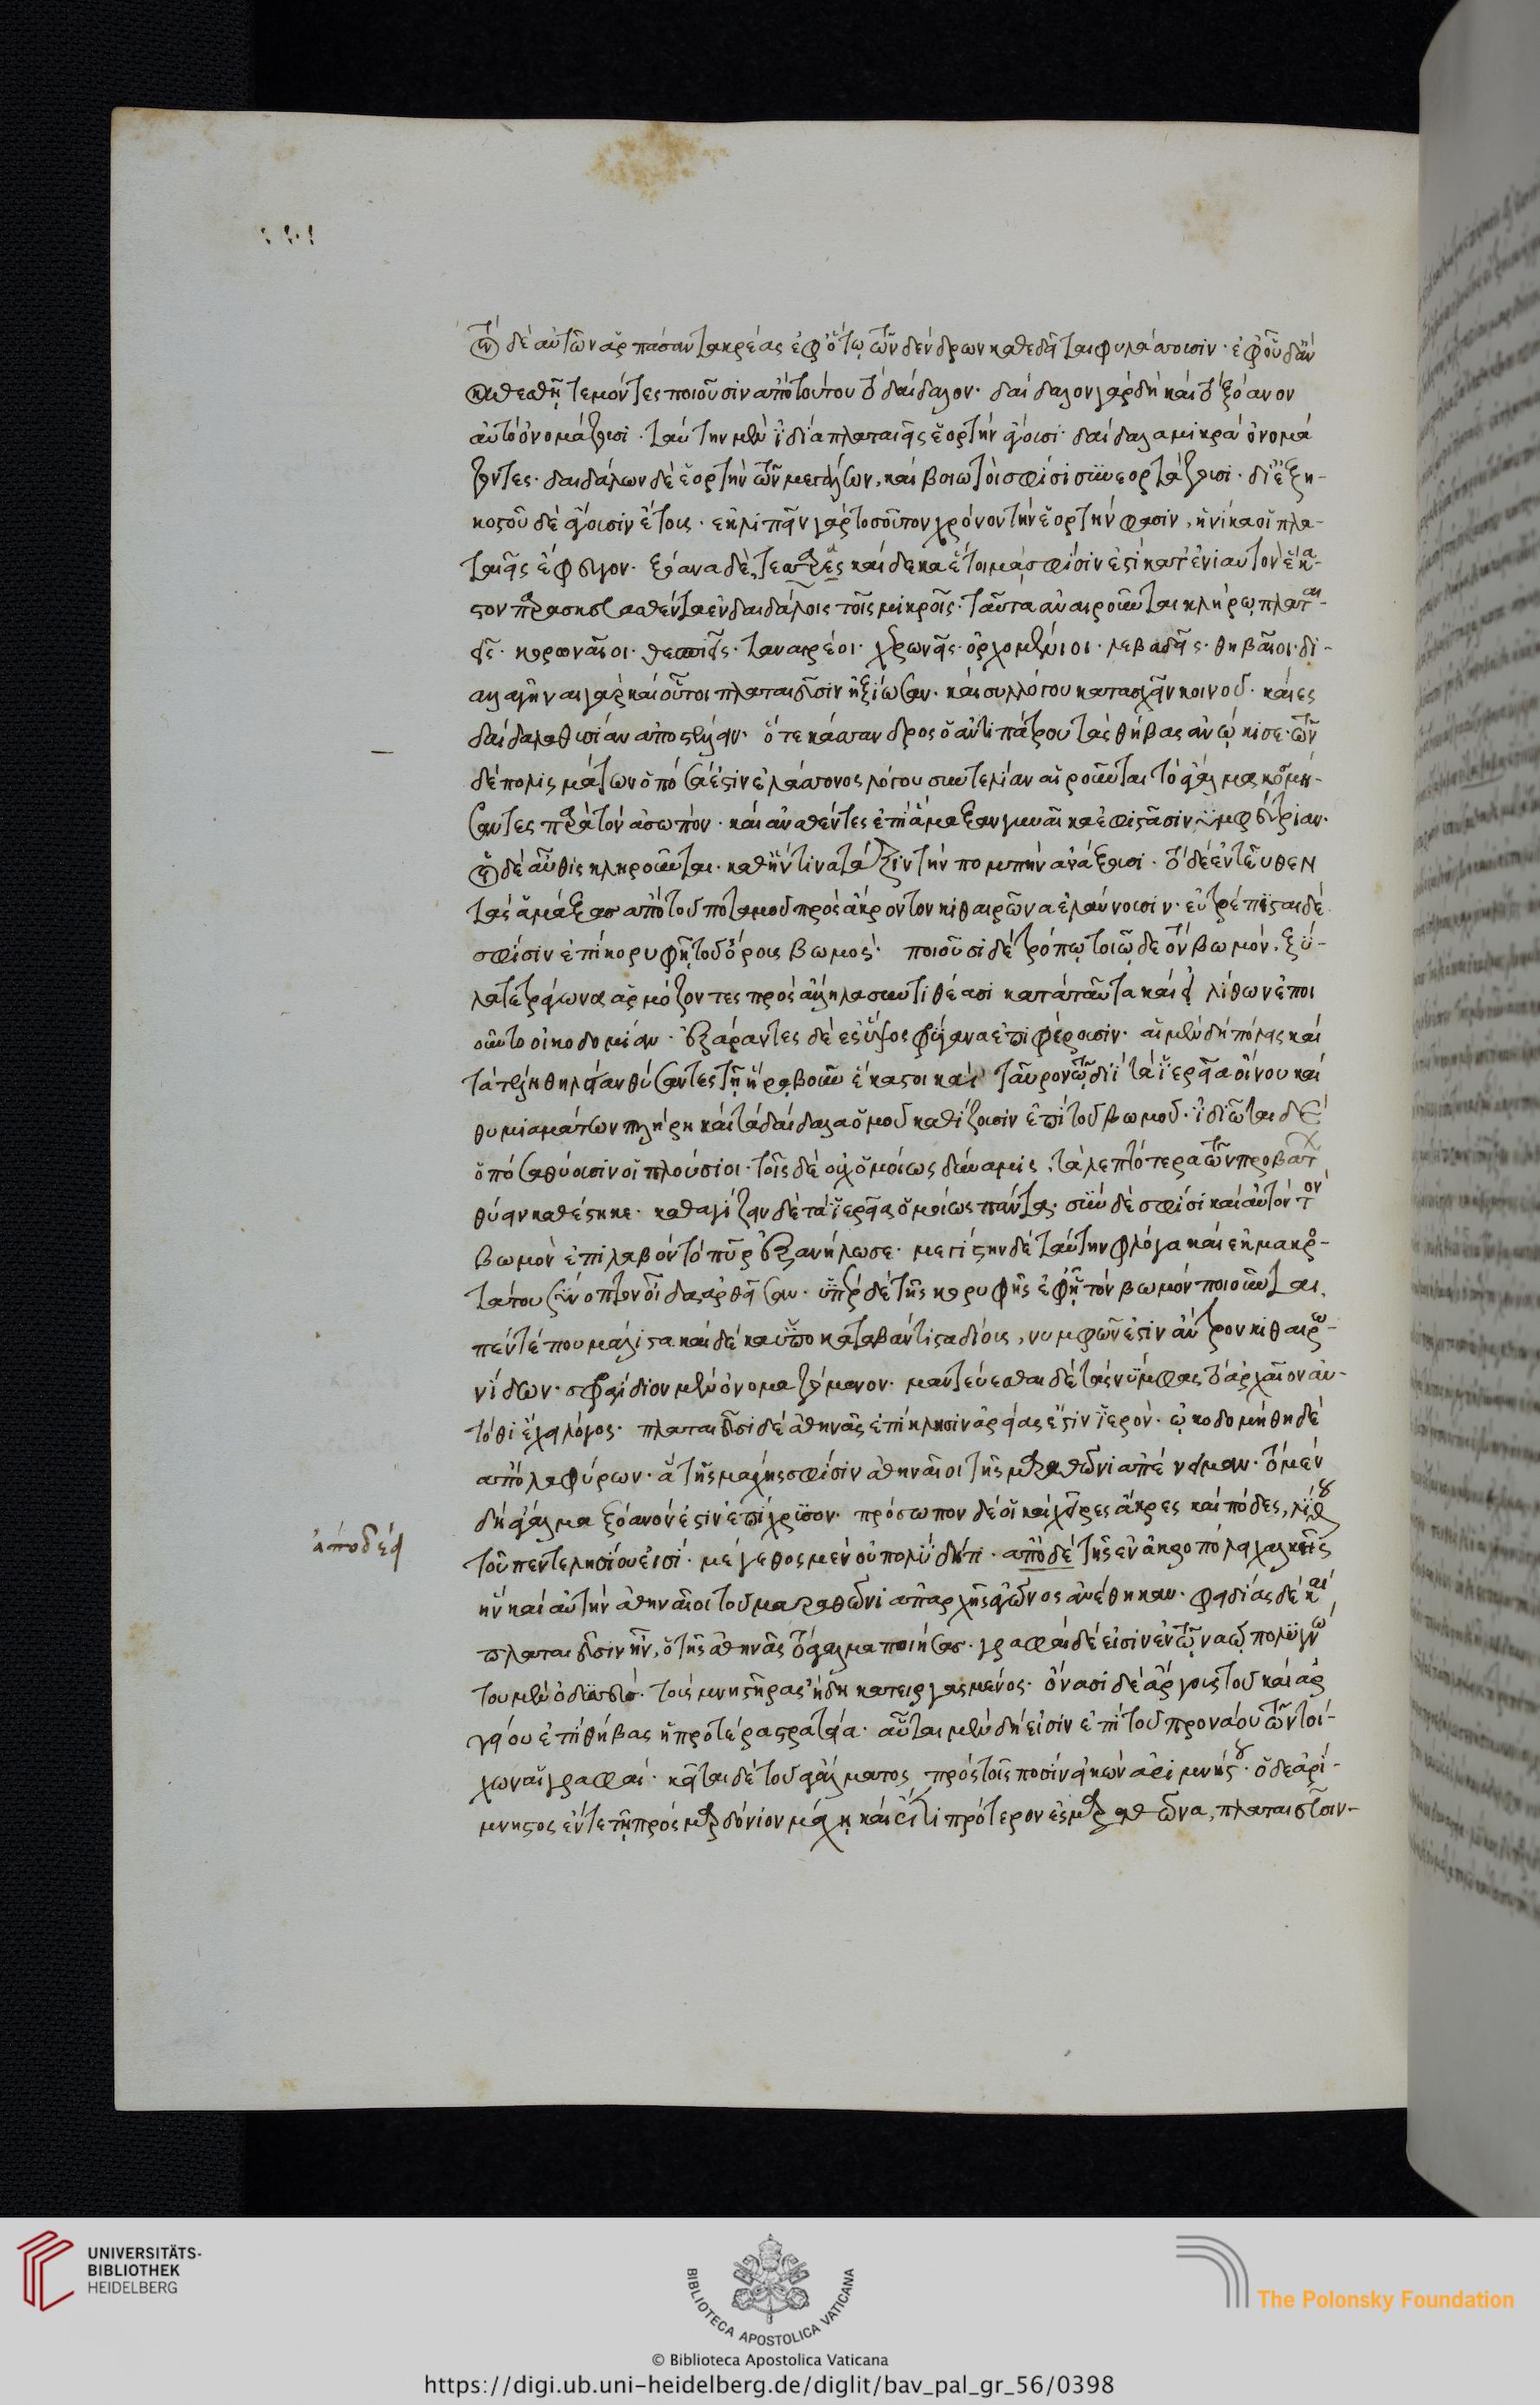 τὸν δὲ αὐτῶν ἁρπάσαντα κρέας ἐφ' ὅτῳ τῶν δένδρων καθεδεῖται φυλάσσουσιν· ἐφ' οὗ δ' ἂν
καθεσθῇ τεμόντες ποιοῦσιν ἀπὸ τούτου τὸ δαίδαλον· δαίδαλον γὰρ δὴ καὶ τὸ ξόανον
αὐτὸ ὀνομάζουσι· ταύτην μὲν ἰδίᾳ πλαταιεῖς ἑορτὴν ἄγουσι· δαίδαλα μικρὰ ὀνομά
ζοντες· δαιδάλων δὲ ἑορτὴν τῶν μεγάλων, καὶ βοιωτοί σφισι συνεορτάζουσι· δι' ἑξη-
κοστοῦ δὲ ἄγουσιν ἔτους· ἐκλιπεῖν γὰρ τοσοῦτον χρόνον τὴν ἑορτήν φασιν, ἡνίκα οἱ πλα-
ταιεῖς ἔφευγον· ξόανα δὲ τεσσαρεσκαίδεκα ἕτοιμά σφισίν ἐστι κατ' ἐνιαυτὸν ἕκα-
στον παρασκευασθέντα ἐν δαιδάλοις τοῖς μικροῖς· ταῦτα ἀναιροῦνται κλήρῳ πλαται-
εῖς· κορωναῖοι· θεσπιεῖς· ταναγρέοι· χερωνεῖς· ὀρχομένιοι· λεβαδεῖς· θηβαῖοι· δι-
αλλαγῆναι γὰρ καὶ οὗτοι πλαταιεῦσιν ἠξίωσαν· καὶ συλλόγου μετασχεῖν κοινοῦ· καὶ ἐς
δαίδαλα θυσίαν ἀποστέλλειν· ὅτε κάσσανδρος ὁ ἀντιπάτρου τὰς θήβας ἀνῴκισε· τῶν
δὲ πολισμάτων ὁπόσα ἐστὶν ἐλάσσονος λόγου συντέλειαν αἱροῦνται τὸ ἄγαλμα κοσμή-
σαντες παρὰ τὸν ἀσωπόν· καὶ ἀναθέντες ἐπὶ ἅμαξαν γυναῖκα ἐφιστᾶσιν νυμφεύτριαν·
οἱ δὲ αὖθις κληροῦνται· καθ' ἥντινα τάξιν τὴν πομπὴν ἀνάξουσι· τὸ δὲ ἐντεῦθεν
τὰς ἁμάξας ἀπὸ τοῦ ποταμοῦ πρὸς ἄκρον τὸν κιθαιρῶνα ἐλαύνουσιν· εὐτρέπισται δέ
σφισιν ἐπὶ κορυφῇ τοῦ ὄρους βωμός· ποιοῦσι δὲ τρόπῳ τοιῷδε τὸν βωμόν, ξύ-
λα τετράγωνα ἁρμόζοντες πρὸς ἄλληλα συντιθέασι κατὰ ταῦτα καὶ εἰ λίθων ἐποι
οῦντο οἰκοδομίαν· ἐξάραντες δὲ ἐς ὕψος φρύγανα ἐπιφέρουσιν· αἱ μὲν δὴ πόλεις καὶ
τὰ τέλη θήλειαν θύσαντες τῇ ἥρᾳ βοῦν ἕκαστοι καὶ ταῦρον τῷ διὶ τὰ ἱερεῖα οἴνου καὶ
θυμιαμάτων πλήρη καὶ τὰ δαίδαλα ὁμοῦ καθίζουσιν ἐπὶ τοῦ βωμοῦ· ἰδιῶται δὲ
ὁπόσα θύουσιν οἱ πλούσιοι· τοῖς δὲ οὐχ ὁμοίως δύναμις, τὰ λεπτότερα τῶν προβάτων
θύειν καθέστηκε· καθαγίζειν δὲ τὰ ἱερεῖα ὁμοίως πάντα· σὺν δέ σφισι καὶ αὐτὸν τὸν
βωμὸν ἐπιλαβὸν τὸ πῦρ ἐξανήλωσε· μεγίστην δὲ ταύτην φλόγα καὶ ἐκ μακρο-
τάτου σύνοπτον οἶδα ἀρθεῖσαν· ὑπὲρ δὲ τῆς κορυφῆς ἐφ' ᾗ τὸν βωμὸν ποιοῦνται,
πέντε που μάλιστα καὶ δέκα ὑποκαταβάντι σταδίους, νυμφῶν ἐστὶν ἄντρον κιθαιρω-
νίδων· σφραγίδιον μὲν ὀνομαζόμενον· μαντεύεσθαι δὲ τὰς νύμφας τὸ ἀρχαῖον αὐ-
τόθι ἔχει λόγος· πλαταιεῦσι δὲ ἀθηνᾶς ἐπίκλησιν ἀρείας ἐστὶν ἱερόν· ᾠκοδομήθη δὲ
ἀπὸ λαφύρων· ἃ τῆς μάχης σφίσιν ἀθηναῖοι τῆς μαραθῶνι ἀπένειμαν· τὸ μὲν
δὴ ἄγαλμα ξόανόν ἐστιν ἐπίχρυσον· πρόσωπον δέ οἱ καὶ χεῖρες ἄκρες καὶ πόδες, λίθου
τοῦ πεντελησίου εἰσί· μέγεθος μὲν οὐ πολὺ δή τι· ἀπὸ δέ τῆς ἐν ἀκροπόλει χαλκῆς
ἣν καὶ αὐτὴν ἀθηναῖοι τοῦ μαραθῶνι ἀπαρχῆς ἀγῶνος ἀνέθηκαν· φειδίας δὲ καὶ
πλαταιεῦσιν ἦν, ὁ τῆς ἀθηνᾶς τὸ ἄγαλμα ποιήσας· γραφαὶ δέ εἰσιν ἐν τῷ ναῷ πολυγνώ
του μὲν ὀδυσσεὺς· τοὺς μνηστῆρας ἤδη κατειργασμένος· ὀνασί δὲ ἀργοιστοῦ καὶ ἀρ
γείου ἐπὶ θήβας ἡ προτέρα στρατεία· αὗται μὲν δή εἰσιν ἐπὶ τοῦ προνάου τῶν τοί-
χων αἱ γραφαί· κεῖται δὲ τοῦ ἀγάλματος πρὸς τοῖς ποσὶν εἰκὼν ἀριμνήστου· ὁ δὲ ἀρί-
μνηστος ἔν τε τῇ πρὸς μαρδόνιον μάχῃ καὶ ἔτι πρότερον ἐς μαραθῶνα, πλαταιεῦσιν-
ἀπο δέει
UNIVERSITÄTS-
BIBLIOTHEK
HEIDELBERG
BIBLIOTECA APOSTOLICA VATICANA
The Polonsky Foundation
© Biblioteca Apostolica Vaticana
https://digi.ub.uni-heidelberg.de/diglit/bav_pal_gr_56/0398